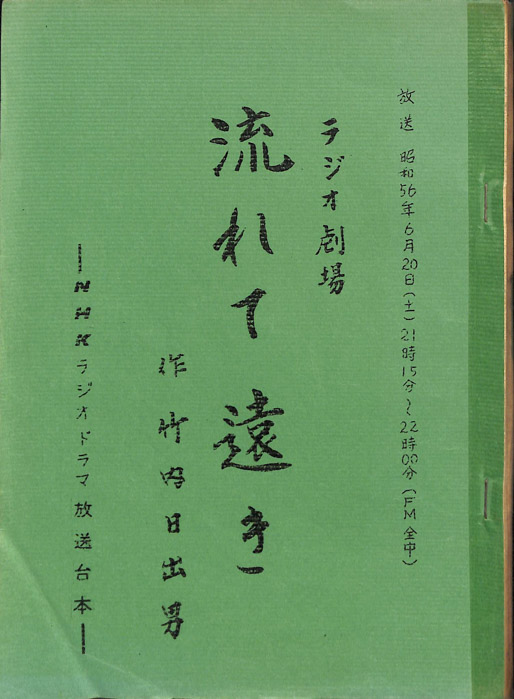 放送 昭和56年6月20日(土)21時15分～22時00分(FM全中)
ラジオ劇場
流れて遠き
作 竹内日出男
―NHKラジオドラマ放送台本―